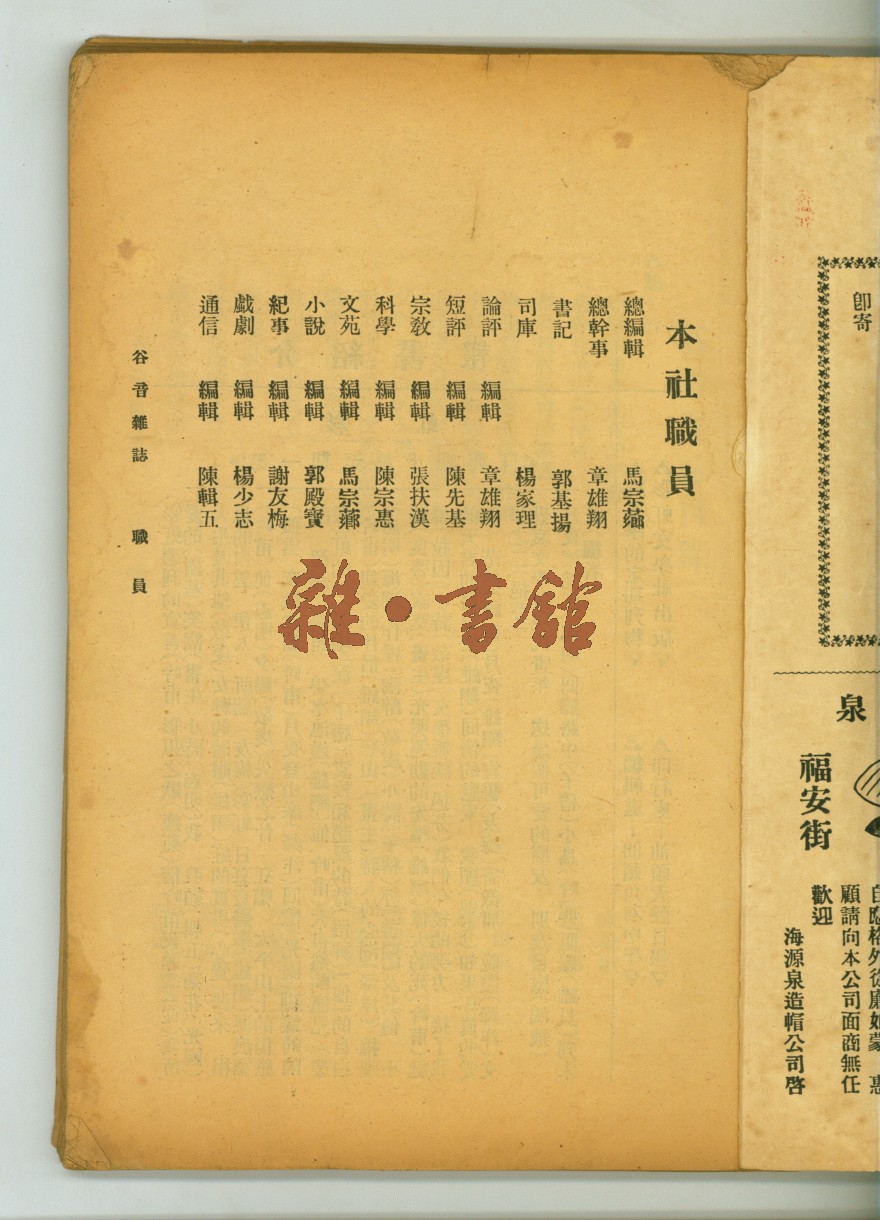 本社職員
總編輯 馬宗薌
總幹事 章雄翔
書記 郭基揚
司庫 楊家理
論評 編輯 章雄翔
短評 編輯 陳先基
宗教 編輯 張扶漢
科學 編輯 陳宗惠
文苑 編輯 馬宗薌
小說 編輯 郭殿寶
紀事 編輯 謝友梅
戲劇 編輯 楊少志
通信 編輯 陳輯五
谷音雜誌 職員
雜·書館
卽寄
泉
福安街
自應格外從廉如蒙 惠
顧請向本公司面商無任
歡迎
海源泉造帽公司啓